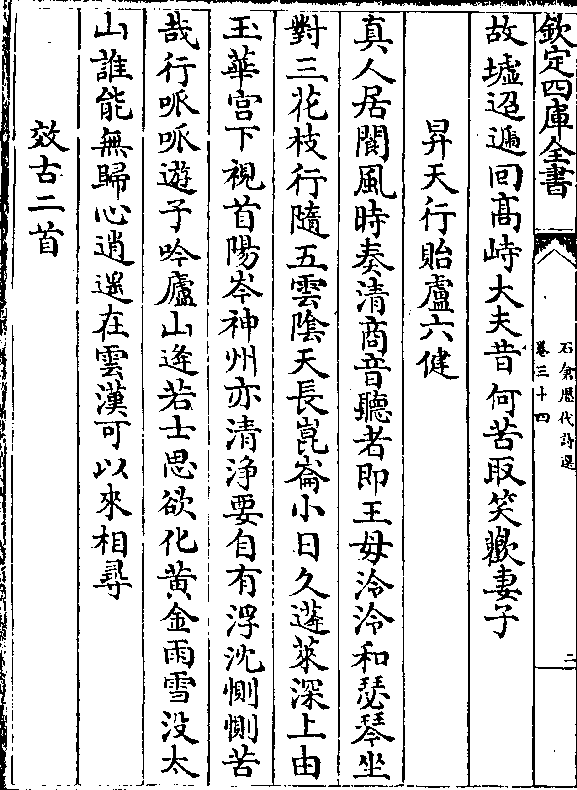 欽定四庫全書
石倉歷代詩選
卷三十四
二
故墟迢遞回髙峙大夫昔何苦取笑歡妻子
昇天行貽盧六健
真人居閬風時奏清商音聽者即王母泠泠和瑟琴坐
對三花枝行隨五雲陰天長崑崙小日久蓬萊深上由
玉華宫下視首陽岑神州亦清浄要自有浮沈惻惻苦
哉行呱呱遊子吟廬山逢若士思欲化黄金雨雪没太
山誰能無歸心逍遥在雲漢可以來相尋
效古二首